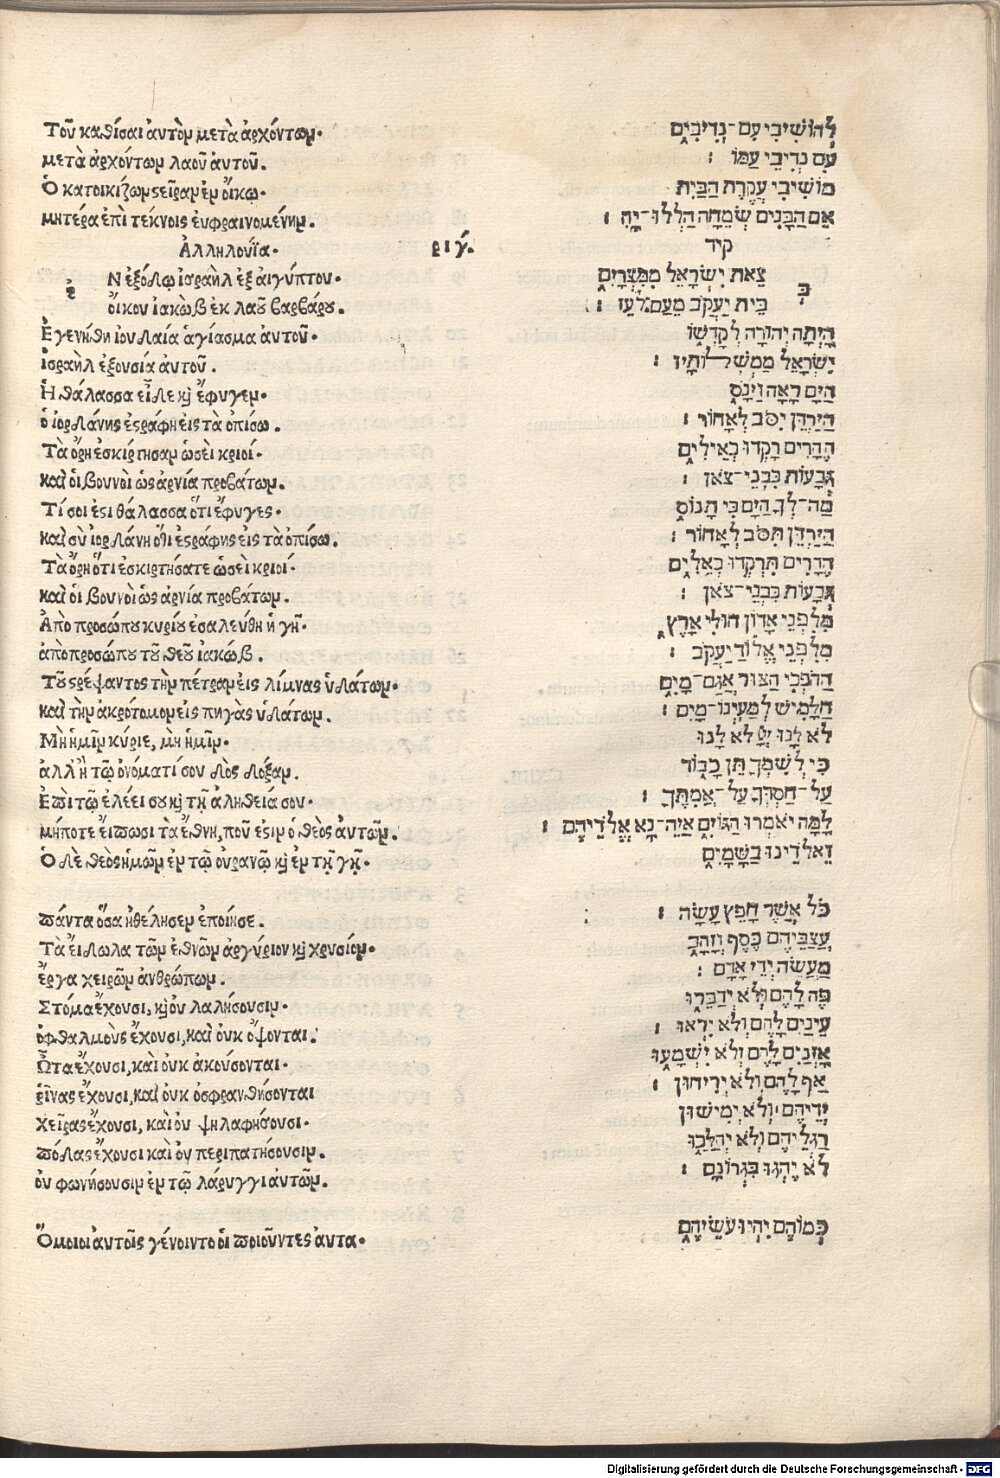 Τοῦ καθίσαι ἀυτὸν μετὰ ἀρχόντων·
μετὰ ἀρχόντων λαοῦ ἀυτοῦ.
Ὁ κατοικίζων ςεῖραν ἐν ὄικῳ·
μητέρα ἐπὶ τέκνοις ἐυφραινομένην.
Ἀλληλούϊα·
ριγ.
Ν ἐξόδῳ ἰσραὴλ ἐξ αἰγύπτου·
ε
ὄικου ἰακὼβ ἐκ λαοῦ βαρβάρου.
Ἐγενήθη ἰουδαία ἁγίασμα ἀυτοῦ·
ἰσραὴλ ἐξουσία ἀυτοῦ.
Ἡ θάλασσα εἶδε καὶ ἔφυγεν·
ὁ ἰορδάνης ἐςράφη εἰς τὰ ὀπίσω.
Τὰ ὄρη ἐσκίρτησαν ὡσεὶ κριοί·
καὶ ὁι βουνοὶ ὡς ἀρνία προβάτων.
Τί σοι ἐςὶ θάλασσα ὅτι ἔφυγες·
καὶ σὺ ἰορδάνη ὅτι ἐςράφης εἰς τὰ ὀπίσω.
Τὰ ὄρη ὅτι ἐσκιρτήσατε ὡσεὶ κριοί·
καὶ ὁι βουνοὶ ὡς ἀρνία προβάτων.
Ἀπὸ προσώπου κυρίου ἐσαλεύθη ἡ γῆ·
ἀπὸ προσώπου τοῦ θεοῦ ἰακώβ.
Τοῦ ςρέψαντος τὴν πέτραν εἰς λίμνας ὑδάτων·
καὶ τὴν ἀκρότομον εἰς πηγὰς ὑδάτων.
Μὴ ἡμῖν κύριε, μὴ ἡμῖν·
ἀλλ' ἢ τῷ ὀνόματί σου δὸς δόξαν.
Ἐπὶ τῷ ἐλέει σου καὶ τῇ ἀληθεία σου·
μήποτε ἔιπωσι τὰ ἔθνη, ποῦ ἐςιν ὁ θεὸς ἀυτῶν.
Ὁ δὲ θεὸς ἡμῶν ἐν τῷ ὀυρανῷ καὶ ἐν τῇ γῇ·
πάντα ὅσα ἠθέλησεν ἐποίησε.
Τὰ ἔιδωλα τῶν ἐθνῶν ἀργύριον καὶ χρυσίον·
ἔργα χειρῶν ἀνθρώπων.
Στόμα ἔχουσι, καὶ ὀυ λαλήσουσιν·
ὀφθαλμοὺς ἔχουσι, καὶ ὀυκ ὄψονται.
Ὦτα ἔχουσι, καὶ ὀυκ ἀκούσονται·
ῥῖνας ἔχουσι, καὶ ὀυκ ὀσφρανθήσονται
χεῖρας ἔχουσι, καὶ ὀυ ψηλαφήσουσι·
πόδας ἔχουσι καὶ ὀυ περιπατήσουσιν.
ὀυ φωνήσουσιν ἐν τῷ λάρυγγι ἀυτῶν.
Ὅμοιοι ἀυτοῖς γένοιντο ὁι ποιοῦντες ἀυτα·
לְהוֹשִׁיבִי עִם־נְדִיבִים
עִם נְדִיבֵי עַמּוֹ :
מוֹשִׁיבִי עֲקֶרֶת הַבַּיִת
אֵם הַבָּנִים שְׂמֵחָה הַלְלוּ־יָהּ :
קיד
צֵאת יִשְׂרָאֵל מִמִּצְרָיִם
ב
בֵּית יַעֲקֹב מֵעַם לֹעֵז :
הָיְתָה יְהוּדָה לְקָדְשׁוֹ
יִשְׂרָאֵל מַמְשְׁלוֹתָיו :
הַיָּם רָאָה וַיָּנֹס
הַיַּרְדֵּן יִסֹּב לְאָחוֹר :
הֶהָרִים רָקְדוּ כְאֵילִים
גְּבָעוֹת כִּבְנֵי־צֹאן :
מַה־לְּךָ הַיָּם כִּי תָנוּס
הַיַּרְדֵּן תִּסֹּב לְאָחוֹר :
הֶהָרִים תִּרְקְדוּ כְאֵלִים
גְּבָעוֹת כִּבְנֵי־צֹאן :
מִלִּפְנֵי אָדוֹן חוּלִי אָרֶץ
מִלִּפְנֵי אֱלוֹהַּ יַעֲקֹב :
הַהֹפְכִי הַצּוּר אֲגַם־מָיִם
חַלָּמִישׁ לְמַעְיְנוֹ־מָיִם :
לֹא לָנוּ יְיָ לֹא לָנוּ
כִּי לְשִׁמְךָ תֵּן כָּבוֹד
עַל־חַסְדְּךָ עַל־אֲמִתֶּךָ :
לָמָּה יֹאמְרוּ הַגּוֹיִם אַיֵּה־נָא אֱלֹהֵיהֶם :
וֵאלֹהֵינוּ בַשָּׁמָיִם
כֹּל אֲשֶׁר חָפֵץ עָשָׂה :
עֲצַבֵּיהֶם כֶּסֶף וְזָהָב
מַעֲשֵׂה יְדֵי אָדָם :
פֶּה לָהֶם וְלֹא יְדַבֵּרוּ
עֵינַיִם לָהֶם וְלֹא יִרְאוּ :
אָזְנַיִם לָהֶם וְלֹא יִשְׁמָעוּ
אַף לָהֶם וְלֹא יְרִיחוּן :
יְדֵיהֶם וְלֹא יְמִישׁוּן
רַגְלֵיהֶם וְלֹא יְהַלֵּכוּ
לֹא יֶהְגּוּ בִּגְרוֹנָם :
כְּמוֹהֶם יִהְיוּ עֹשֵׂיהֶם
Digitalisierung gefördert durch die Deutsche Forschungsgemeinschaft - DFG